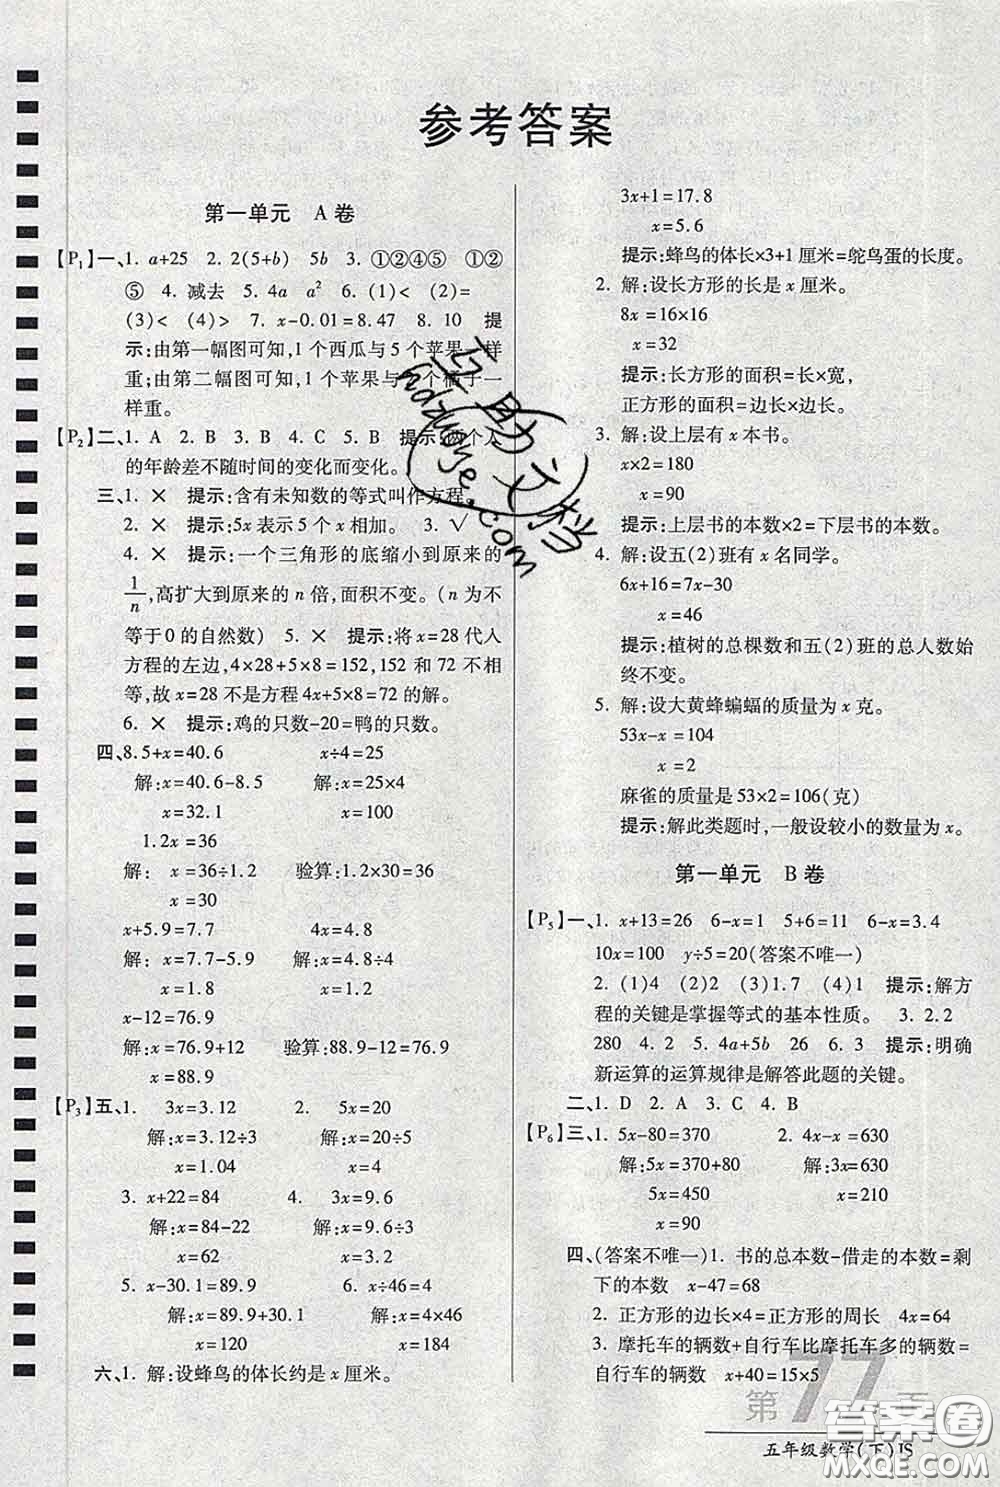 参考答案
第一单元 A卷
【P₁】一、1. a+25 2. 2(5+b) 5b 3. ①②④⑤ ①②
⑤ 4. 减去 5. 4a a² 6. (1)< (2)=
(3)< (4)> 7. x-0.01=8.47 8. 10 提
示:由第一幅图可知,1个西瓜与5个苹果一样
重;由第二幅图可知,1个苹果与 个橘子一
样重。
【P₂】二、1. A 2. B 3. B 4. C 5. B 提示:两个人
的年龄差不随时间的变化而变化。
三、1. × 提示:含有未知数的等式叫作方程。
2. × 提示:5x表示5个x相加。 3. √
4. × 提示:一个三角形的底缩小到原来的
1/n,高扩大到原来的n倍,面积不变。(n为不
等于0的自然数) 5. × 提示:将x=28代入
方程的左边,4×28+5×8=152,152和72不相
等,故x=28不是方程4x+5×8=72的解。
6. × 提示:鸡的只数-20=鸭的只数。
四、8.5+x=40.6 x÷4=25
解:x=40.6-8.5 解:x=25×4
x=32.1 x=100
1.2x=36
解: x=36÷1.2 验算:1.2×30=36
x=30
x+5.9=7.7 4x=4.8
解: x=7.7-5.9 解:x=4.8÷4
x=1.8 x=1.2
x-12=76.9
解: x=76.9+12 验算:88.9-12=76.9
x=88.9
【P₃】五、1. 3x=3.12 2. 5x=20
解:x=3.12÷3 解:x=20÷5
x=1.04 x=4
3. x+22=84 4. 3x=9.6
解:x=84-22 解:x=9.6÷3
x=62 x=3.2
5. x-30.1=89.9 6. x÷46=4
解:x=89.9+30.1 解:x=4×46
x=120 x=184
六、1. 解:设蜂鸟的体长约是x厘米。
3x+1=17.8
x=5.6
提示:蜂鸟的体长×3+1厘米=鸵鸟蛋的长度。
2. 解:设长方形的长是x厘米。
8x=16×16
x=32
提示:长方形的面积=长×宽,
正方形的面积=边长×边长。
3. 解:设上层有x本书。
x×2=180
x=90
提示:上层书的本数×2=下层书的本数。
4. 解:设五(2)班有x名同学。
6x+16=7x-30
x=46
提示:植树的总棵数和五(2)班的总人数始
终不变。
5. 解:设大黄蜂蝙蝠的质量为x克。
53x-x=104
x=2
麻雀的质量是53×2=106(克)
提示:解此类题时,一般设较小的数量为x。
第一单元 B卷
【P₅】一、1. x+13=26 6-x=1 5+6=11 6-x=3.4
10x=100 y÷5=20(答案不唯一)
2. (1)4 (2)2 (3)1.7 (4)1 提示:解方
程的关键是掌握等式的基本性质。 3. 2.2
280 4. 2 5. 4a+5b 26 6. 3 提示:明确
新运算的运算规律是解答此题的关键。
二、1. D 2. A 3. C 4. B
【P₆】三、1. 5x-80=370 2. 4x-x=630
解:5x=370+80 解:3x=630
5x=450 x=210
x=90
四、(答案不唯一)1. 书的总本数-借走的本数=剩
下的本数 x-47=68
2. 正方形的边长×4=正方形的周长 4x=64
3. 摩托车的辆数+自行车比摩托车多的辆数=
自行车的辆数 x+40=15×5
第77页
五年级数学(下)JS
答案卷
MXQE.COM